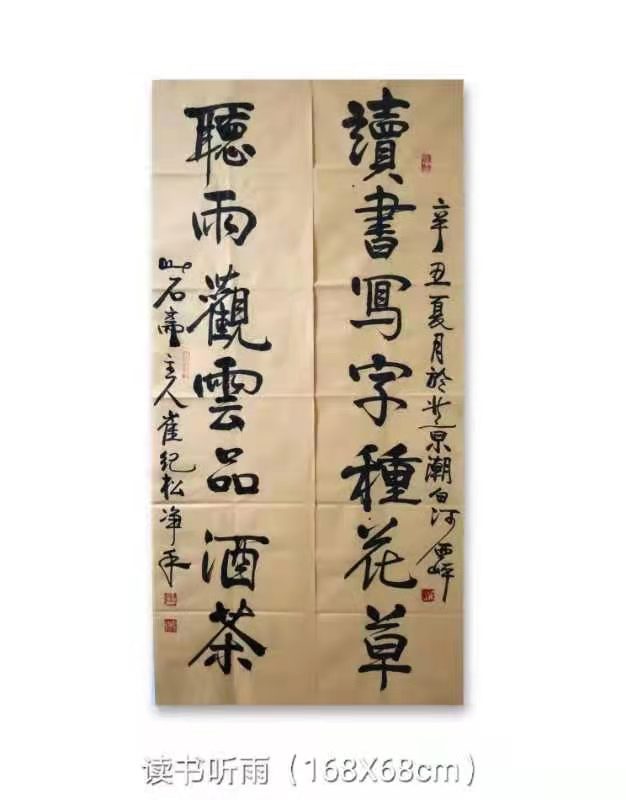 辛丑夏月於北京潮白河西岸
讀書寫字種花草
聽雨觀雲品酒茶
山石齋主人崔纪松净手
读书听雨（168X68cm）